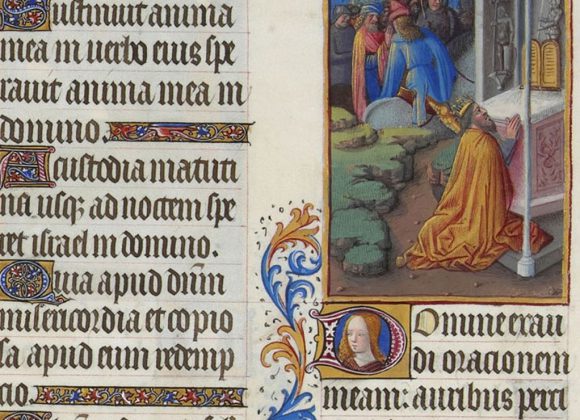 Sustinuit anima
mea in uerbo eius spe
rauit anima mea in
domino.
A custodia matuti
ni usq; ad noctem spe
ret israel in domino.
Quia apud dn̄m
misericordia et copio
sa apud eum redemp
cio.
Domine exau
di oracionem
meam: auribus perci